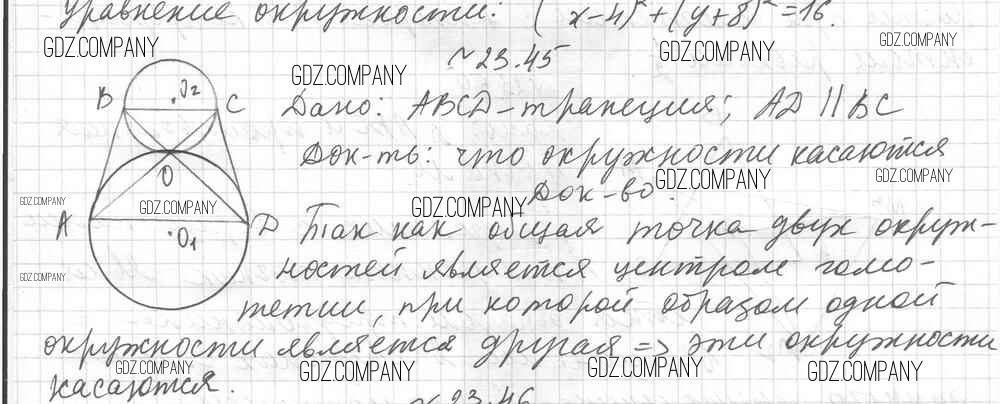 Уравнение окружности: (x-4)² + (y+8)² = 16.
GDZ.COMPANY GDZ.COMPANY GDZ.COMPANY
№23.45
GDZ.COMPANY
B O₂ C Дано: ABCD - трапеция; AD || BC
Док-ть: что окружности касаются
O GDZ.COMPANY GDZ.COMPANY
Док-во:
GDZ.COMPANY GDZ.COMPANY GDZ.COMPANY
A D Так как общая точка двух окруж-
O₁ ностей является центром гомо-
GDZ.COMPANY
тетии, при которой образом одной
окружности является другая => эти окружности
GDZ.COMPANY GDZ.COMPANY GDZ.COMPANY GDZ.COMPANY
касаются.
№23.46